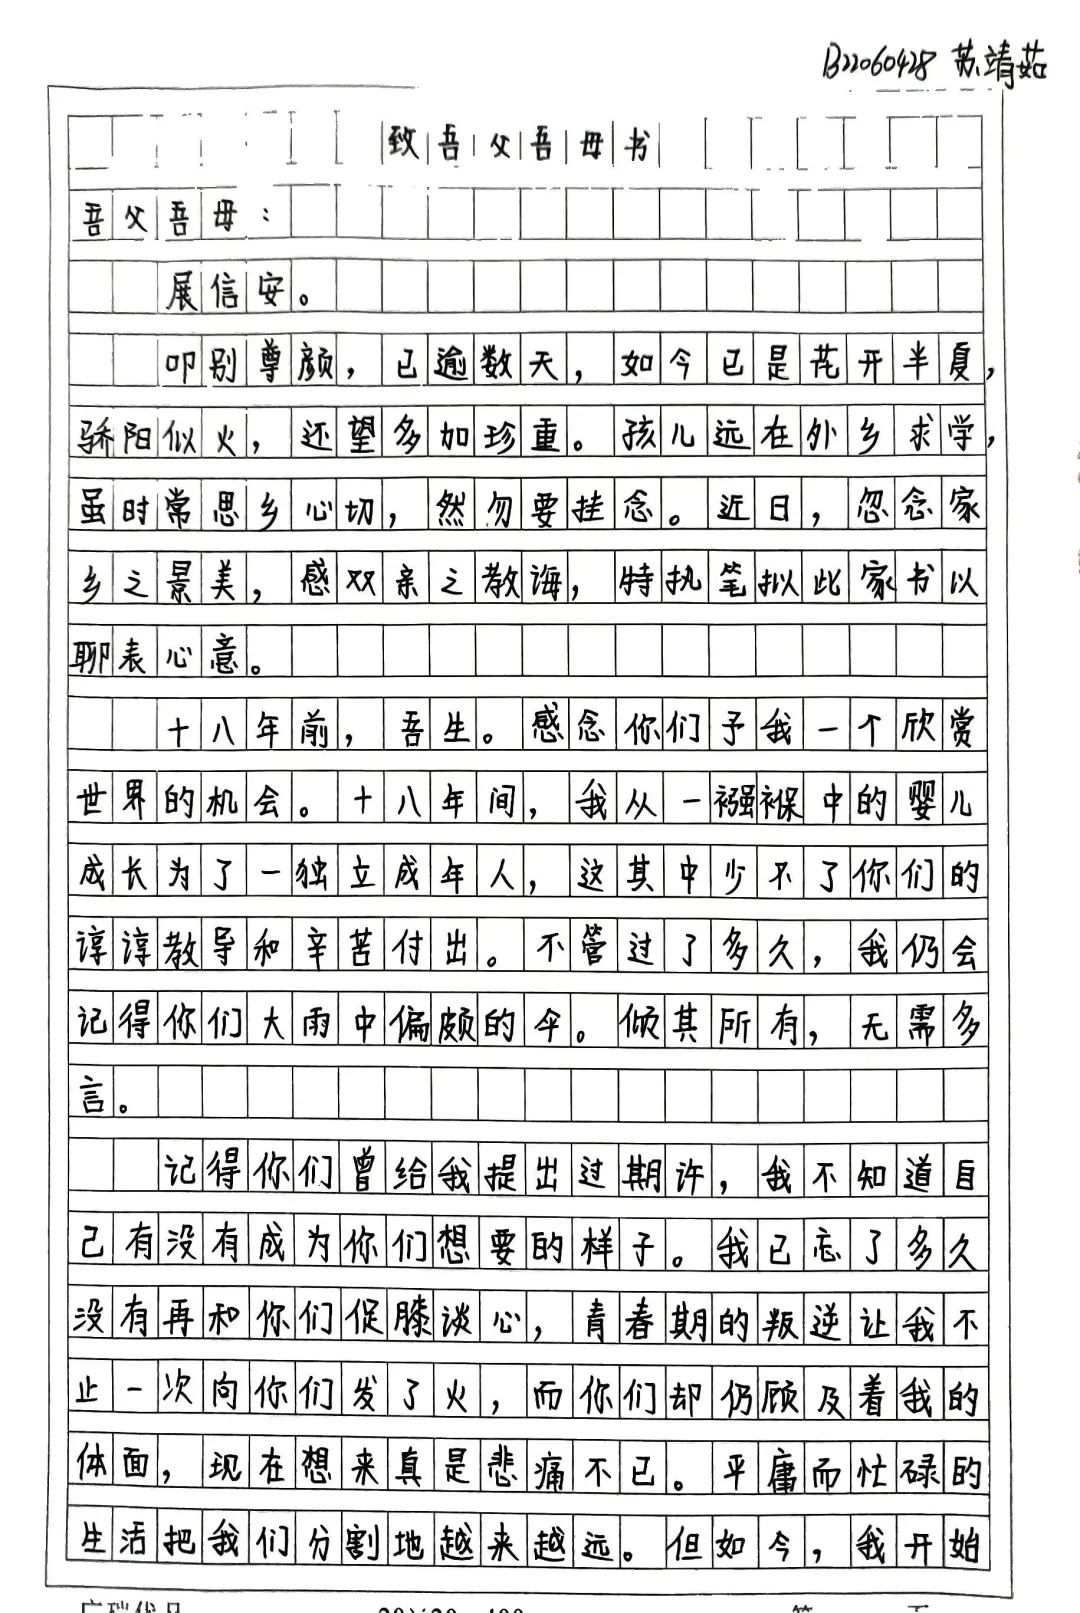 B22060428 苏靖茹
致吾父吾母书
吾父吾母：
展信安。
叩别尊颜，已逾数天，如今已是花开半夏，
骄阳似火，还望多加珍重。孩儿远在外乡求学，
虽时常思乡心切，然勿要挂念。近日，忽念家
乡之景美，感双亲之教诲，特执笔拟此家书以
聊表心意。
十八年前，吾生。感念你们予我一个欣赏
世界的机会。十八年间，我从一襁褓中的婴儿
成长为了一独立成年人，这其中少不了你们的
谆谆教导和辛苦付出。不管过了多久，我仍会
记得你们大雨中偏颇的伞。倾其所有，无需多
言。
记得你们曾给我提出过期许，我不知道自
己有没有成为你们想要的样子。我已忘了多久
没有再和你们促膝谈心，青春期的叛逆让我不
止一次向你们发了火，而你们却仍顾及着我的
体面，现在想来真是悲痛不已。平庸而忙碌的
生活把我们分割地越来越远。但如今，我开始